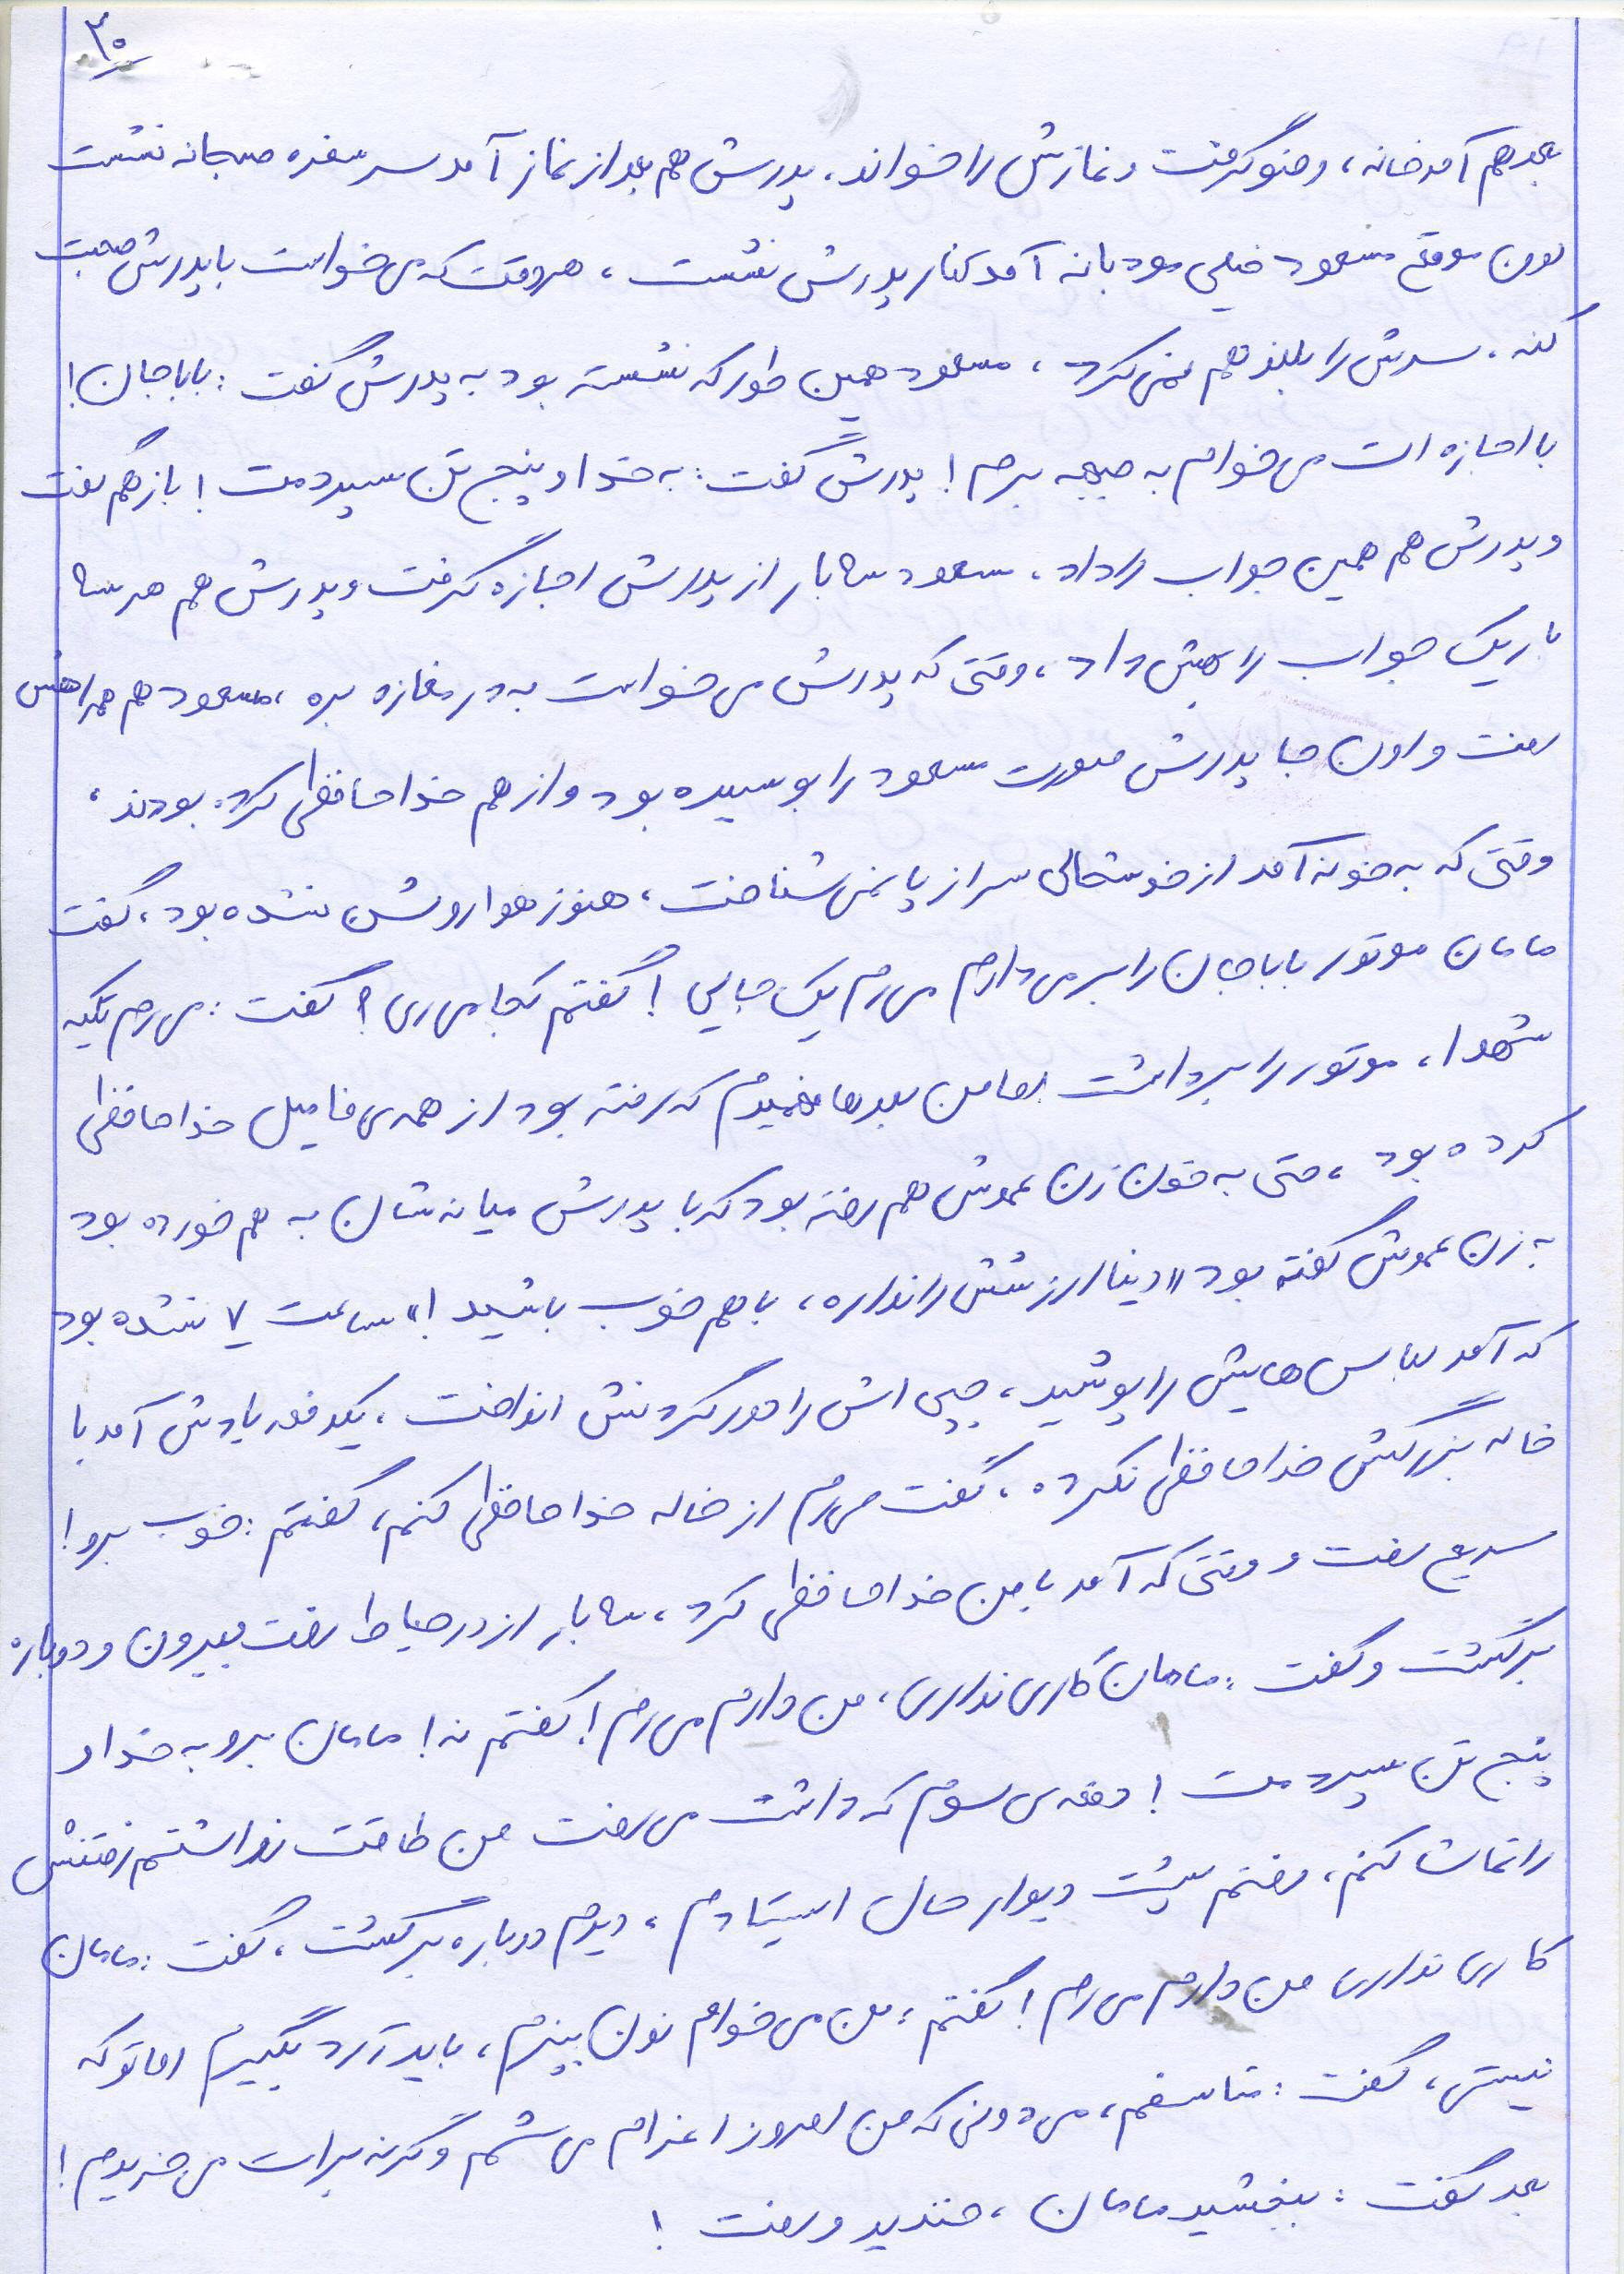 ۲۰
بعد هم آمد خانه، وضو گرفت و نمازش را خواند، پدرش هم بعد از نماز آمد سر سفره صبحانه نشست
اون موقع مسعود خیلی مودبانه آمد کنار پدرش نشست، هر وقت که می خواست با پدرش صحبت
کنه، سرش را بلند هم نمی کرد، مسعود همین طور که نشسته بود به پدرش گفت: باباجان!
با اجازه ات می خوام به جبهه برم! پدرش گفت: به خدا و پنج تن سپردمت! باز هم گفت
و پدرش هم همین جواب را داد، مسعود سه بار از پدرش اجازه گرفت و پدرش هم هر سه
بار یک جواب را بهش داد، وقتی که پدرش می خواست به در مغازه بره، مسعود هم همراهش
رفت و اون جا پدرش صورت مسعود را بوسیده بود و از هم خداحافظی کرده بودند،
وقتی که به خونه آمد از خوشحالی سر از پا نمی شناخت، هنوز هوا روشن نشده بود، گفت
مامان موتور باباجان را بر می دارم می رم یک جایی! گفتم کجا می ری؟ گفت: می رم تکیه
شهدا، موتور را برداشت اما من بعدها فهمیدم که رفته بود از همه ی فامیل خداحافظی
کرده بود، حتی به خون زن عموش هم رفته بود که با پدرش میانه شان به هم خورده بود
به زن عموش گفته بود «دنیا ارزشش را نداره، با هم خوب باشید!» ساعت ۷ نشده بود
که آمد لباس هایش را پوشید، چپی اش را دور گردنش انداخت، یکدفعه یادش آمد با
خاله بزرگش خداحافظی نکرده، گفت می رم از خاله خداحافظی کنم، گفتم: خوب برو!
سریع رفت و وقتی که آمد با من خداحافظی کرد، سه بار از در حیاط رفت بیرون و دوباره
برگشت و گفت: مامان کاری نداری، من دارم می رم! گفتم نه! مامان برو به خدا و
پنج تن سپردمت! دفعه ی سوم که داشت می رفت من طاقت نداشتم رفتنش
را تماشا کنم، رفتم پشت دیوار حال ایستادم، دیدم دوباره برگشت، گفت: مامان
کاری نداری من دارم می رم! گفتم: من می خوام نون بپزم، باید آرد بگیرم اما تو که
نیستی، گفت: متاسفم، می دونی که من امروز اعزام می شم و گرنه برات می خریدم!
بعد گفت: ببخشید مامان، خندید و رفت!